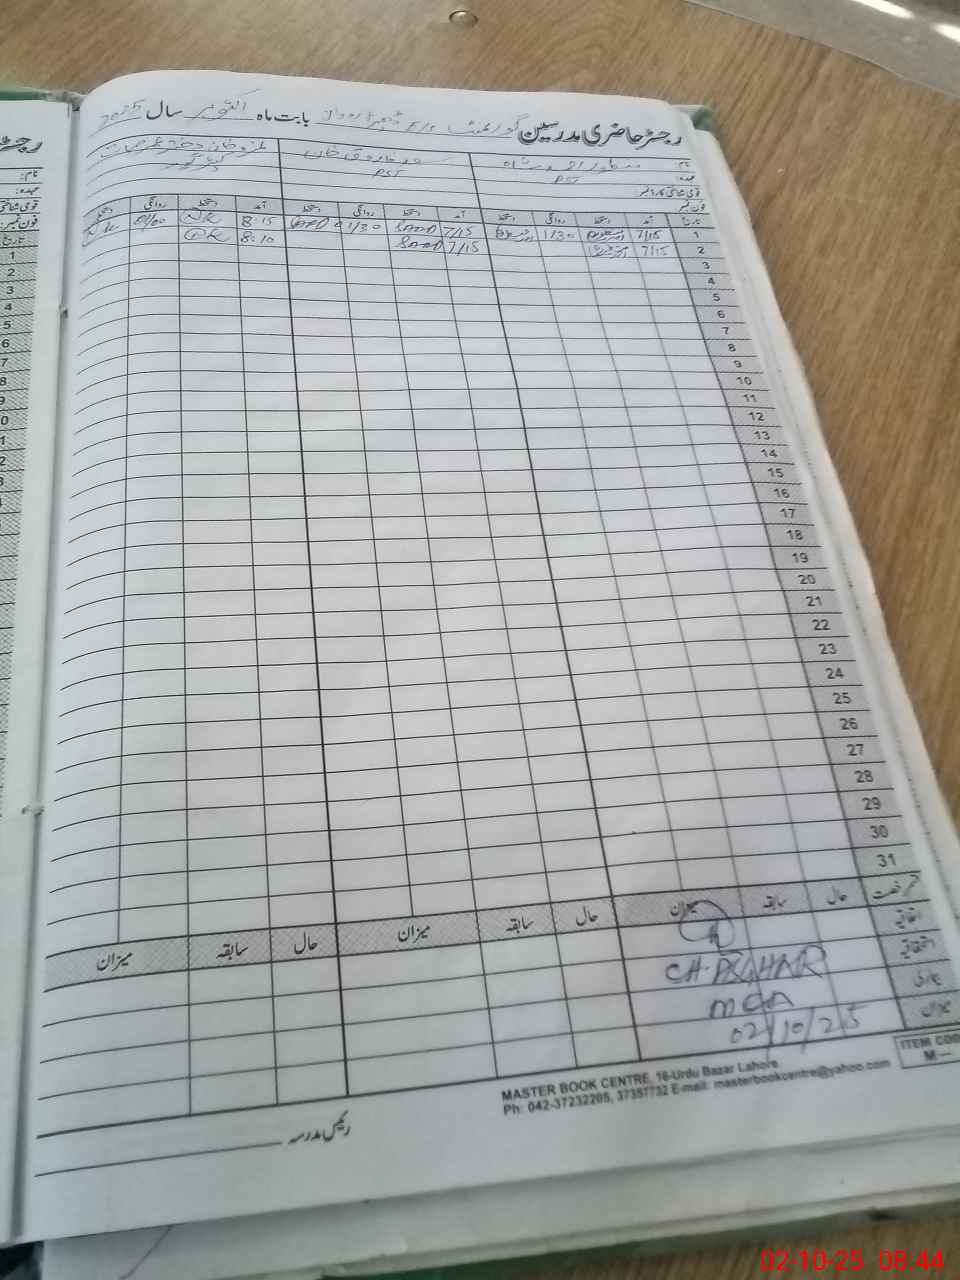 رجسٹر حاضری مدرسین گورنمنٹ بابت ماہ اکتوبر سال 2025
نام: منظور احمد شاہ
عہدہ: PST PST
قومی شناختی کارڈ نمبر:
فون نمبر:
تاریخ آمد دستخط روانگی دستخط آمد دستخط روانگی دستخط آمد دستخط روانگی دستخط
1 7/15 1/30 7/15 SAAD 01/30 SAAD 8:15 NK
2 7/15 7/15 SAAD 8:10 NK
3
4
5
6
7
8
9
10
11
12
13
14
15
16
17
18
19
20
21
22
23
24
25
26
27
28
29
30
31
قسم رخصت حال سابقہ میزان حال سابقہ میزان حال سابقہ میزان
اتفاقیہ
استحقاقیہ
بیماری
میزان
CH.
MEA
02/10/25
ITEM COD
M—
MASTER BOOK CENTRE, 16-Urdu Bazar Lahore
Ph: 042-37232205, 37357732 E-mail: masterbookcentre@yahoo.com
رئیس مدرسہ
رجسٹر
نام:
عہدہ:
قومی شناختی
فون نمبر:
تاریخ
1
2
3
4
5
6
7
8
9
0
1
2
3
02-10-25 08:44